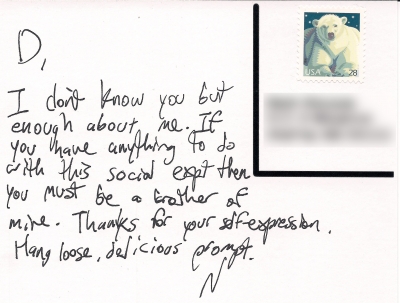 D,
I don't know you but
enough about me. If
you have anything to do
with this social expt then
you must be a brother of
mine. Thanks for your self-expression.
Hang loose, delicious prompt.
N
USA 28